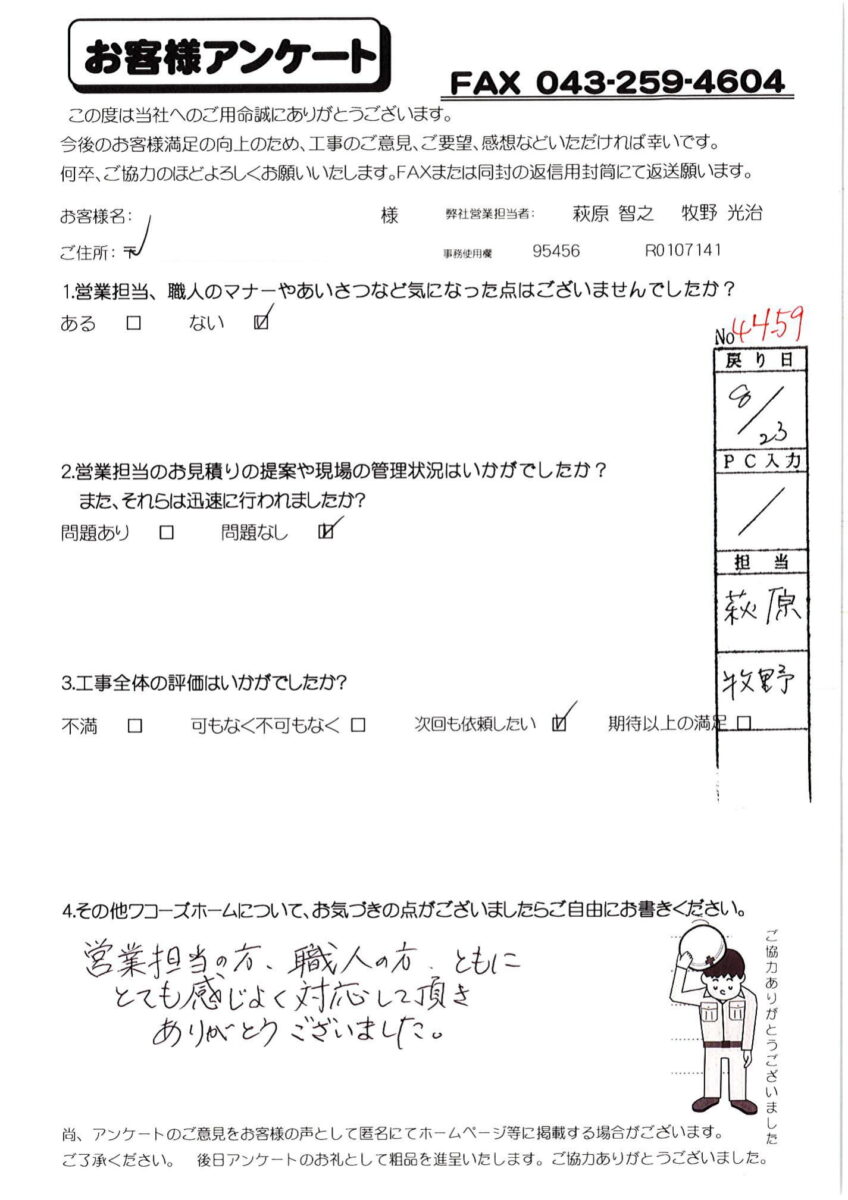 お客様アンケート
FAX 043-259-4604
この度は当社へのご用命誠にありがとうございます。
今後のお客様満足の向上のため、工事のご意見、ご要望、感想などいただければ幸いです。
何卒、ご協力のほどよろしくお願いいたします。FAXまたは同封の返信用封筒にて返送願います。
お客様名: 様 弊社営業担当者: 萩原 智之 牧野 光治
ご住所: 〒 事務使用欄 95456 R0107141
1.営業担当、職人のマナーやあいさつなど気になった点はございませんでしたか?
ある □ ない ☑
No 4459
戻り日
8/23
2.営業担当のお見積りの提案や現場の管理状況はいかがでしたか?
また、それらは迅速に行われましたか?
問題あり □ 問題なし ☑
PC入力
/
担当
萩原
牧野
3.工事全体の評価はいかがでしたか?
不満 □ 可もなく不可もなく □ 次回も依頼したい ☑ 期待以上の満足 □
4.その他ワコーズホームについて、お気づきの点がございましたらご自由にお書きください。
営業担当の方、職人の方、ともに
とても感じよく対応して頂き
ありがとうございました。
ご協力ありがとうございました
尚、アンケートのご意見をお客様の声として匿名にてホームページ等に掲載する場合がございます。
ご了承ください。 後日アンケートのお礼として粗品を進呈いたします。ご協力ありがとうございました。